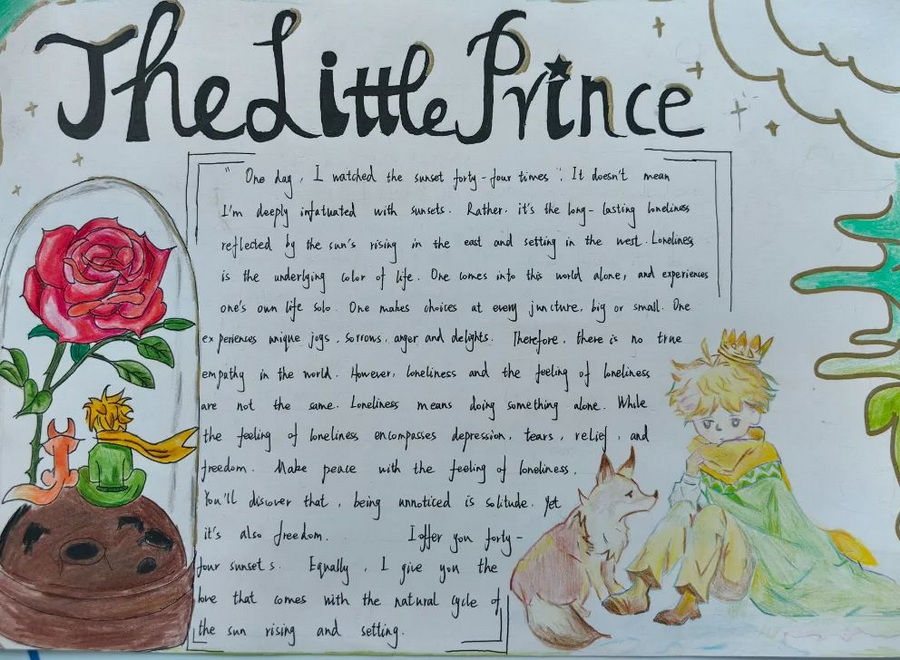 The Little Prince
" One day, I watched the sunset forty-four times ". It doesn't mean
I'm deeply infatuated with sunsets. Rather, it's the long-lasting loneliness
reflected by the sun's rising in the east and setting in the west. Loneliness
is the underlying color of life. One comes into this world alone, and experiences
one's own life solo. One makes choices at every juncture, big or small. One
experiences unique joys, sorrows, anger and delights. Therefore, there is no true
empathy in the world. However, loneliness and the feeling of loneliness
are not the same. Loneliness means doing something alone. While
the feeling of loneliness encompasses depression, tears, relief, and
freedom. Make peace with the feeling of loneliness.
You'll discover that, being unnoticed is solitude. Yet
it's also freedom. I offer you forty-
four sunsets. Equally, I give you the
love that comes with the natural cycle of
the sun rising and setting.